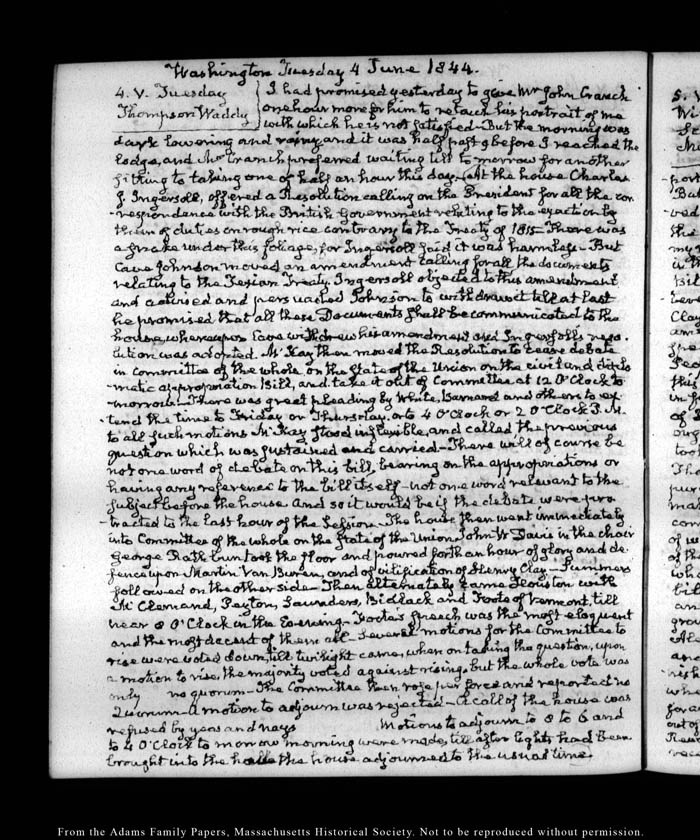 Washington Tuesday 4 June 1844.
4. V. Tuesday
Thompson Waddy
I had promised yesterday to give Mr John Cranch
one hour more for him to retouch his portrait of me
with which he is not satisfied - But the morning was
dark lowering and rainy and it was half past 9 before I reached the
lodge, and Mr Cranch preferred waiting till to-morrow for another
sitting to taking one of half an hour this day. At the house Charles
J. Ingersoll, offered a Resolution calling on the President for all the cor
-respondence with the British Government relating to the exaction by
them of duties on rough rice contrary to the Treaty of 1815 - There was
a snake under this foliage, for Ingersoll said it was harmless - But
Cave Johnson moved an amendment calling for all the documents
relating to the Texian Treaty. Ingersoll objected to this amendment
and advised and persuaded Johnson to withdraw it till at last
he promised that all these Documents shall be communicated to the
house, whereupon Cave withdrew his amendment and Ingersoll's reso-
lution was adopted. McKay then moved the Resolution to cease debate
in committee of the whole on the State of the Union on the civil and diplo
-matic appropriation Bill, and take it out of Committee at 12 O'Clock to
-morrow - There was great pleading by White, Barnard and others to ex
-tend the time to Friday or Thursday, or to 4 O'Clock or 2 O'Clock P.M.
to all such motions McKay stood inflexible, and called the previous
question which was sustained and carried - There will of course be
not one word of debate on this bill, bearing on the appropriations or
having any reference to the bill itself - not one word relevant to the
subject before the house and so it would be if the debate were pro
-tracted to the last hour of the Session. The house then went immediately
into Committee of the whole on the State of the Union. John W Davis in the chair
George Rathbun took the floor and poured forth an hour of glory and de-
fence upon Martin Van Buren, and of vilification of Henry Clay - Summers
followed on the other side - Then alternately came Houston with
McClernand, Peyton, Saunders, Bidlack and Foote of Vermont, till
near 8 O'Clock in the Evening - Foote's speech was the most eloquent
and the most decent of them all - Several motions for the Committee to
rise were voted down, till twilight came, when on taking the question, upon
a motion to rise, the majority voted against rising, but the whole vote was
only no quorum - The Committee then rose per force and reported no
Quorum - A motion to adjourn was rejected - A call of the house was
refused by yeas and nays Motions to adjourn to 8 to 6 and
to 4 O'Clock to morrow morning were made, till after lights had been
brought into the hall the house adjourned to the usual time.
From the Adams Family Papers, Massachusetts Historical Society. Not to be reproduced without permission.